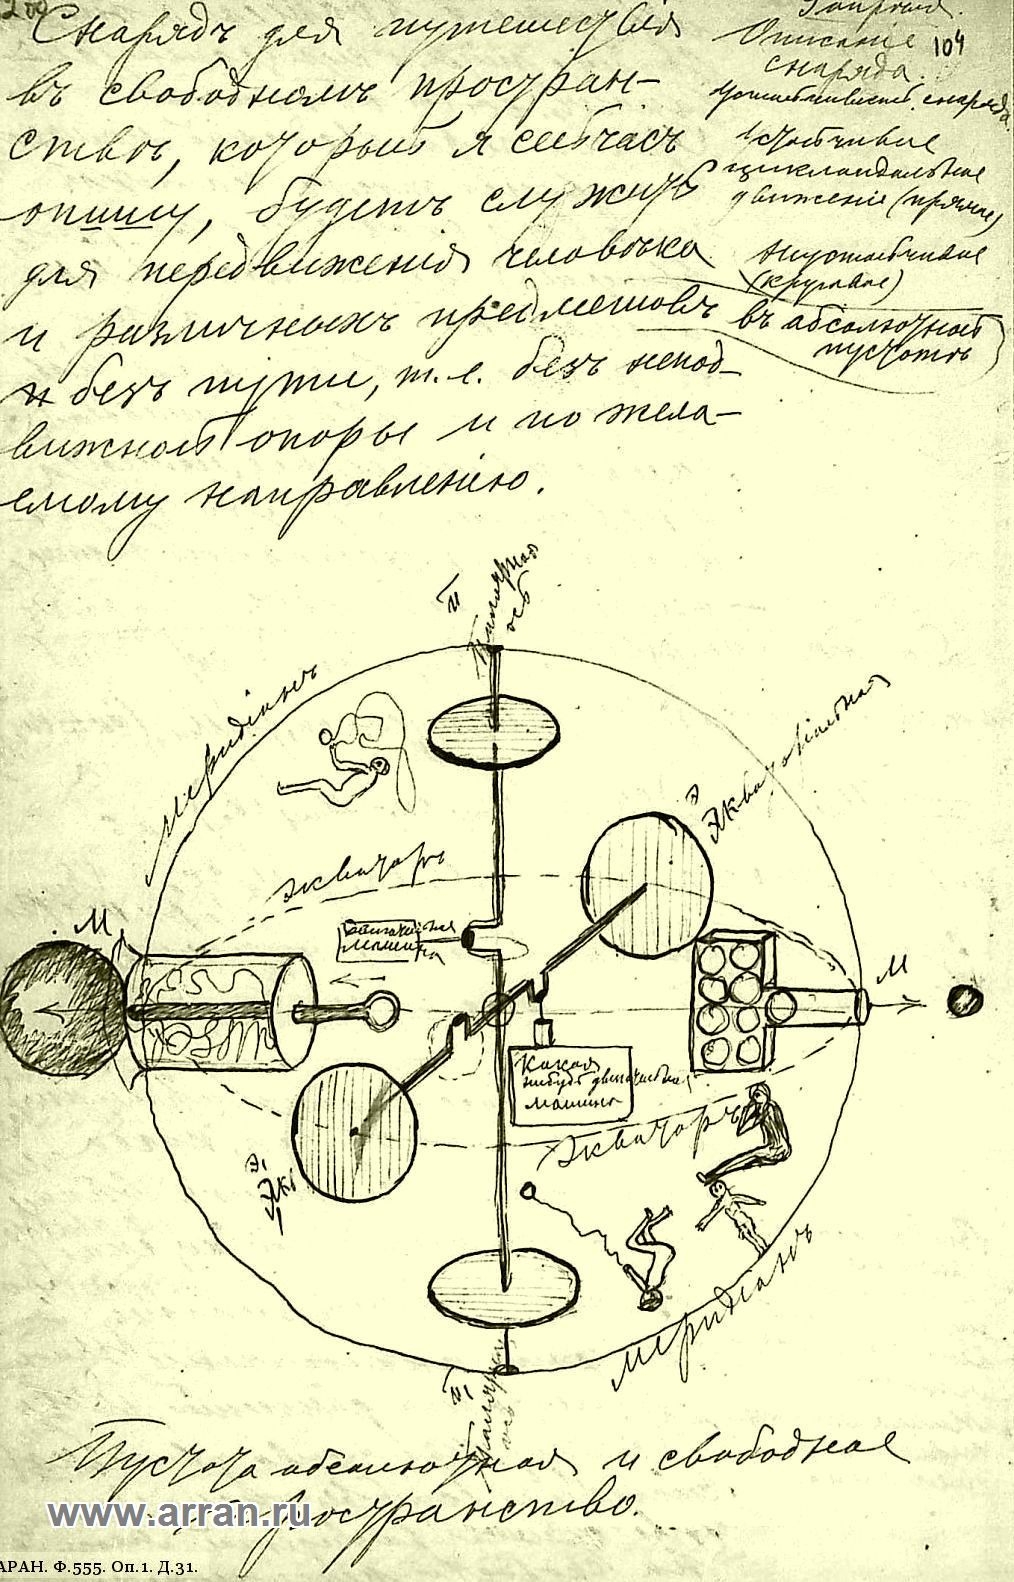 Снарядъ для путешествія
въ свободномъ простран-
ствѣ, который я сейчасъ
опишу, будетъ служить
для передвиженія человѣка
и различныхъ предметовъ въ абсолютной пустотѣ
и безъ пути, т. е. безъ непод-
вижной опоры и по жела-
емому направленію.
104
Описаніе
снаряда.
снаряда.
Устойчивое
движеніе (прямое)
Неустойчивое
(круговое)
П
Полярная
ось
меридіанъ
Э
Экваторіальная
экваторъ
двигательная
машина
М
М
Какая
нибудь двигательная
машина
экваторъ
Э₁
Экв
меридіанъ
П₁
Пустота абсолютная и свободное
пространство.
www.arran.ru
АРАН. Ф.555. Оп.1. Д.31.